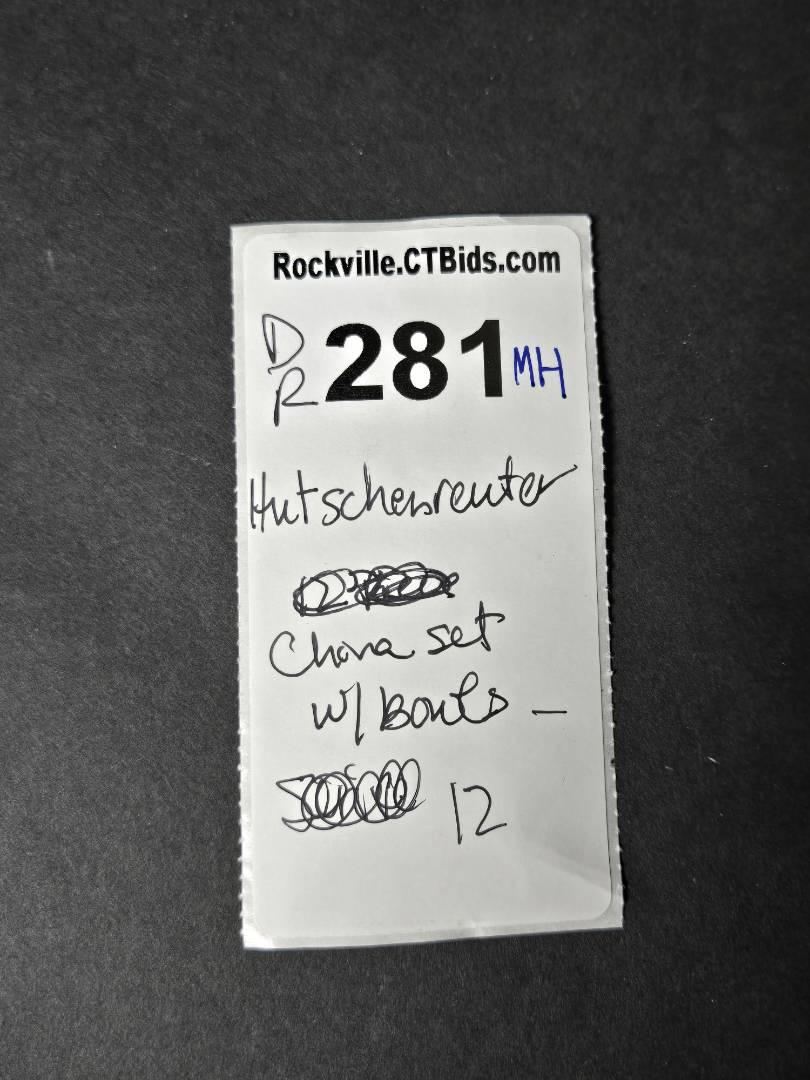 Rockville.CTBids.com
D
R 281 MH
Hutschenreuter
China set
w/ Bowls —
12